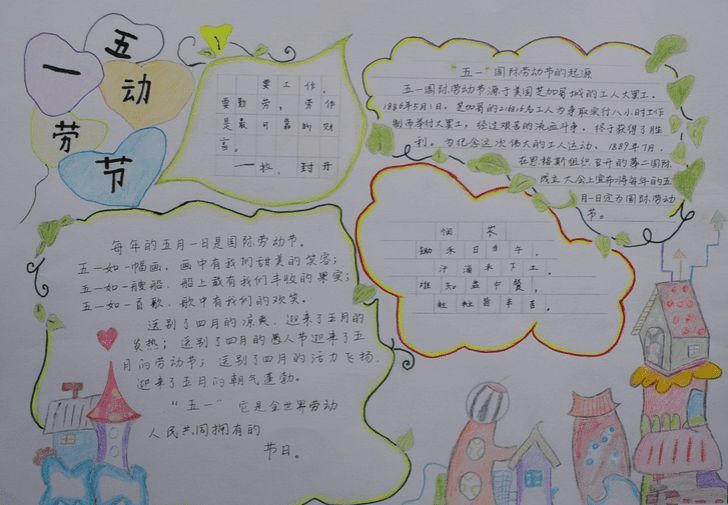 五一劳动节
要工作，
要勤劳：劳作
是最可靠的财
富。
——拉·封丹
“五一”国际劳动节的起源
五一国际劳动节源于美国芝加哥城的工人大罢工。
1886年5月1日，芝加哥的21.6万名工人为争取实行八小时工作
制而举行大罢工，经过艰苦的流血斗争，终于获得了胜
利。为纪念这次伟大的工人运动，1889年7月，
在恩格斯组织召开的第二国际
成立大会上宣布将每年的五
月一日定为国际劳动
节。
每年的五月一日是国际劳动节。
五一如一幅画，画中有我们甜美的笑容；
五一如一艘船，船上载有我们丰收的果实；
五一如一首歌，歌中有我们的欢笑。
送别了四月的凉爽，迎来了五月的
炎热；送别了四月的愚人节迎来了五
月的劳动节；送别了四月的活力飞扬，
迎来了五月的朝气蓬勃。
“五一”它是全世界劳动
人民共同拥有的
节日。
悯农
锄禾日当午，
汗滴禾下土。
谁知盘中餐，
粒粒皆辛苦。